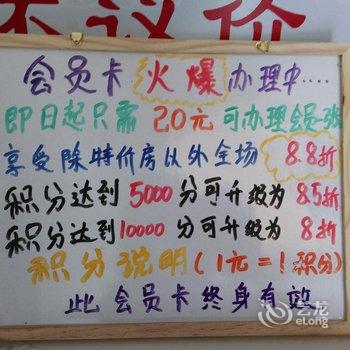 议价
会员卡火爆办理中····
即日起只需20元可办理会员一张
享受除特价房以外全场8.8折
积分达到5000分可升级为8.5折
积分达到10000分可升级为8折
积分说明(1元=1积分)
此会员卡终身有效
艺龙
eLong